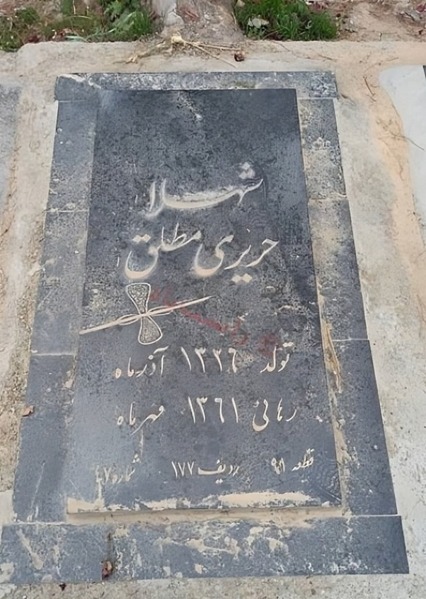 شهلا
حریری مطلق
تولد ۱۳۲۶ آذرماه
رهائی ۱۳۶۱ مهرماه
قطعه ۹۱ ردیف ۱۷۷ شماره ۴۷